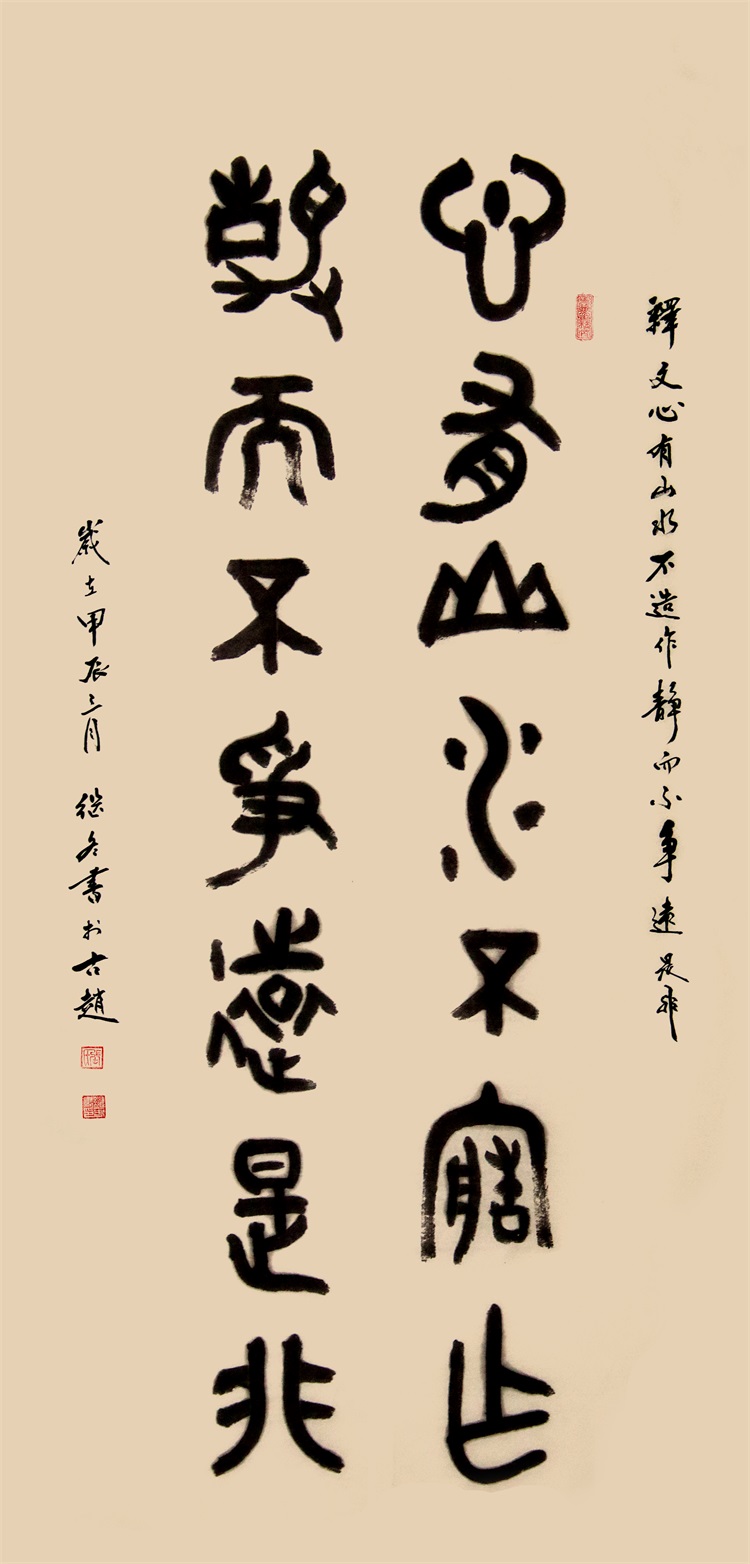 释文心有山水不造作静而不争远是非
心有山水不造作
静而不争远是非
岁在甲辰三月 继冬书于古赵